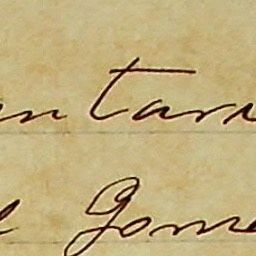 ntari
e Gome